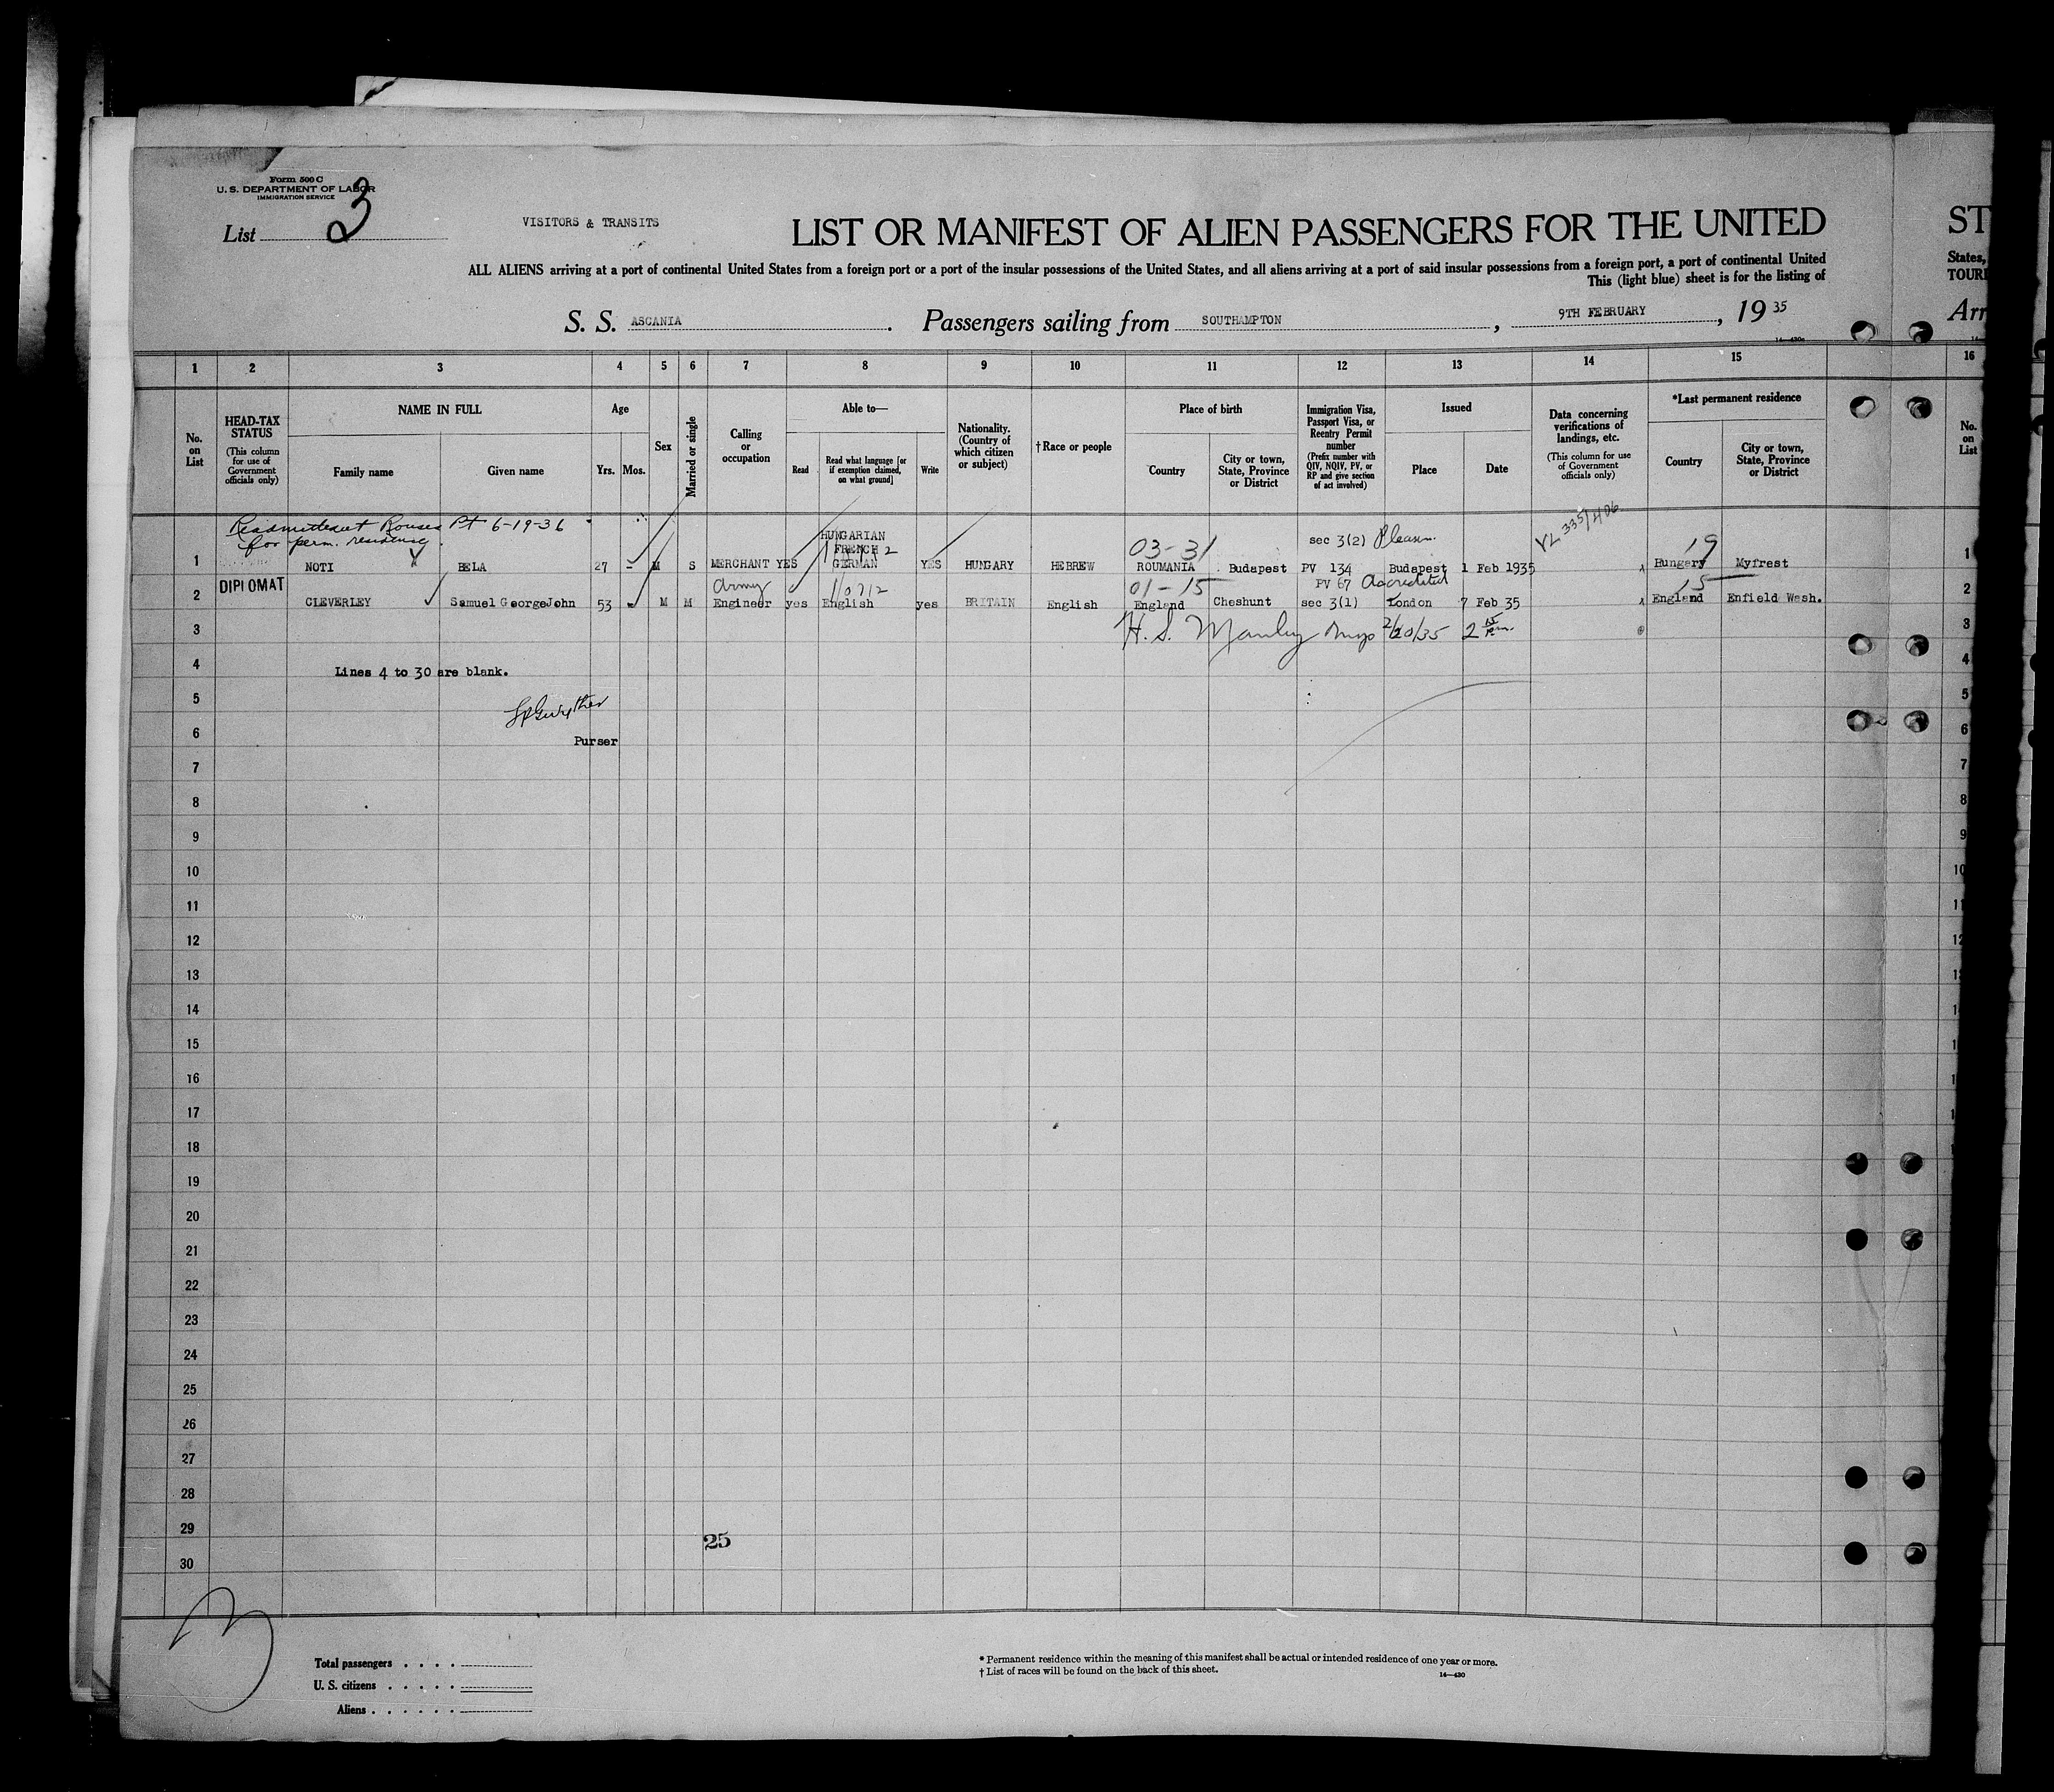 Form 500 C
U. S. DEPARTMENT OF LABOR
IMMIGRATION SERVICE
List 3
VISITORS & TRANSITS
LIST OR MANIFEST OF ALIEN PASSENGERS FOR THE UNITED
ST
ALL ALIENS arriving at a port of continental United States from a foreign port or a port of the insular possessions of the United States, and all aliens arriving at a port of said insular possessions from a foreign port, a port of continental United
States,
This (light blue) sheet is for the listing of
TOURI
S. S. ASCANIA . Passengers sailing from SOUTHAMPTON , 9TH FEBRUARY , 19 35
Arr
1 2 3 4 5 6 7 8 9 10 11 12 13 14 15 16
No. on List
HEAD-TAX STATUS
(This column for use of Government officials only)
NAME IN FULL
Family name
Given name
Age
Yrs.
Mos.
Sex
Married or single
Calling or occupation
Able to—
Read
Read what language [or if exemption claimed, on what ground]
Write
Nationality. (Country of which citizen or subject)
† Race or people
Place of birth
Country
City or town, State, Province or District
Immigration Visa, Passport Visa, or Reentry Permit number
(Prefix number with QIV, NQIV, PV, or RP and give section of act involved)
Issued
Place
Date
Data concerning verifications of landings, etc.
(This column for use of Government officials only)
*Last permanent residence
Country
City or town, State, Province or District
No. on List
Pt 6-19-36
for perm. residence
HUNGARIAN
FRENCH
03-31
sec 3(2)
19
1 NOTI BELA 27 - M S MERCHANT YES GERMAN YES HUNGARY HEBREW ROUMANIA Budapest PV 134 Budapest 1 Feb 1935 Hungary Myfrest 1
DIPLOMAT
Army
01-15
PV 67 Accredited
15
2 CLEVERLEY Samuel GeorgeJohn 53 - M M Engineer yes English yes BRITAIN English England Cheshunt sec 3(1) London 7 Feb 35 England Enfield Wash. 2
3 H. S. Manley 2/20/35 3
4 Lines 4 to 30 are blank. 4
5 5
6 Purser 6
7 7
8 8
9 9
10 10
11 11
12 12
13
14
15
16
17
18
19
20
21
22
23
24
25
26
27
28
29
25
30
Total passengers . . . .
U. S. citizens . . . . .
Aliens . . . . . .
* Permanent residence within the meaning of this manifest shall be actual or intended residence of one year or more.
† List of races will be found on the back of this sheet.
14—430